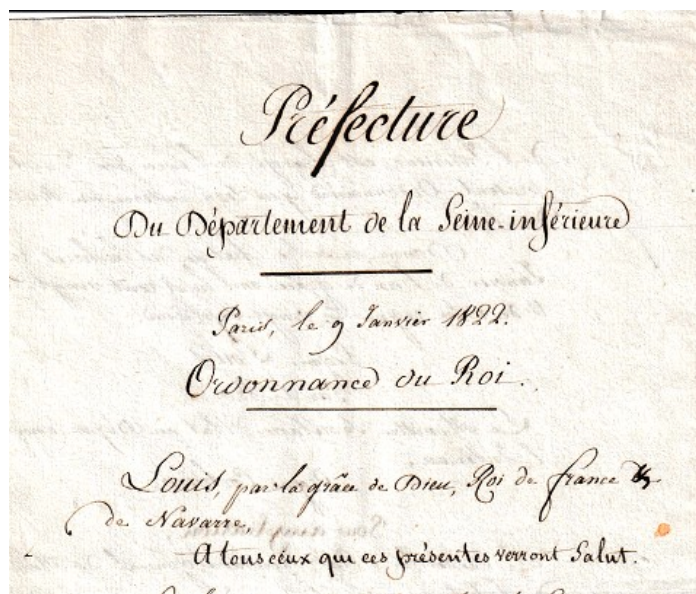 Préfecture
Du Département de la Seine-inférieure
Paris, le 9 Janvier 1822.
Ordonnance du Roi.
Louis, par la grâce de Dieu, Roi de france &
de Navarre,
A tous ceux qui ces présentes verront Salut.